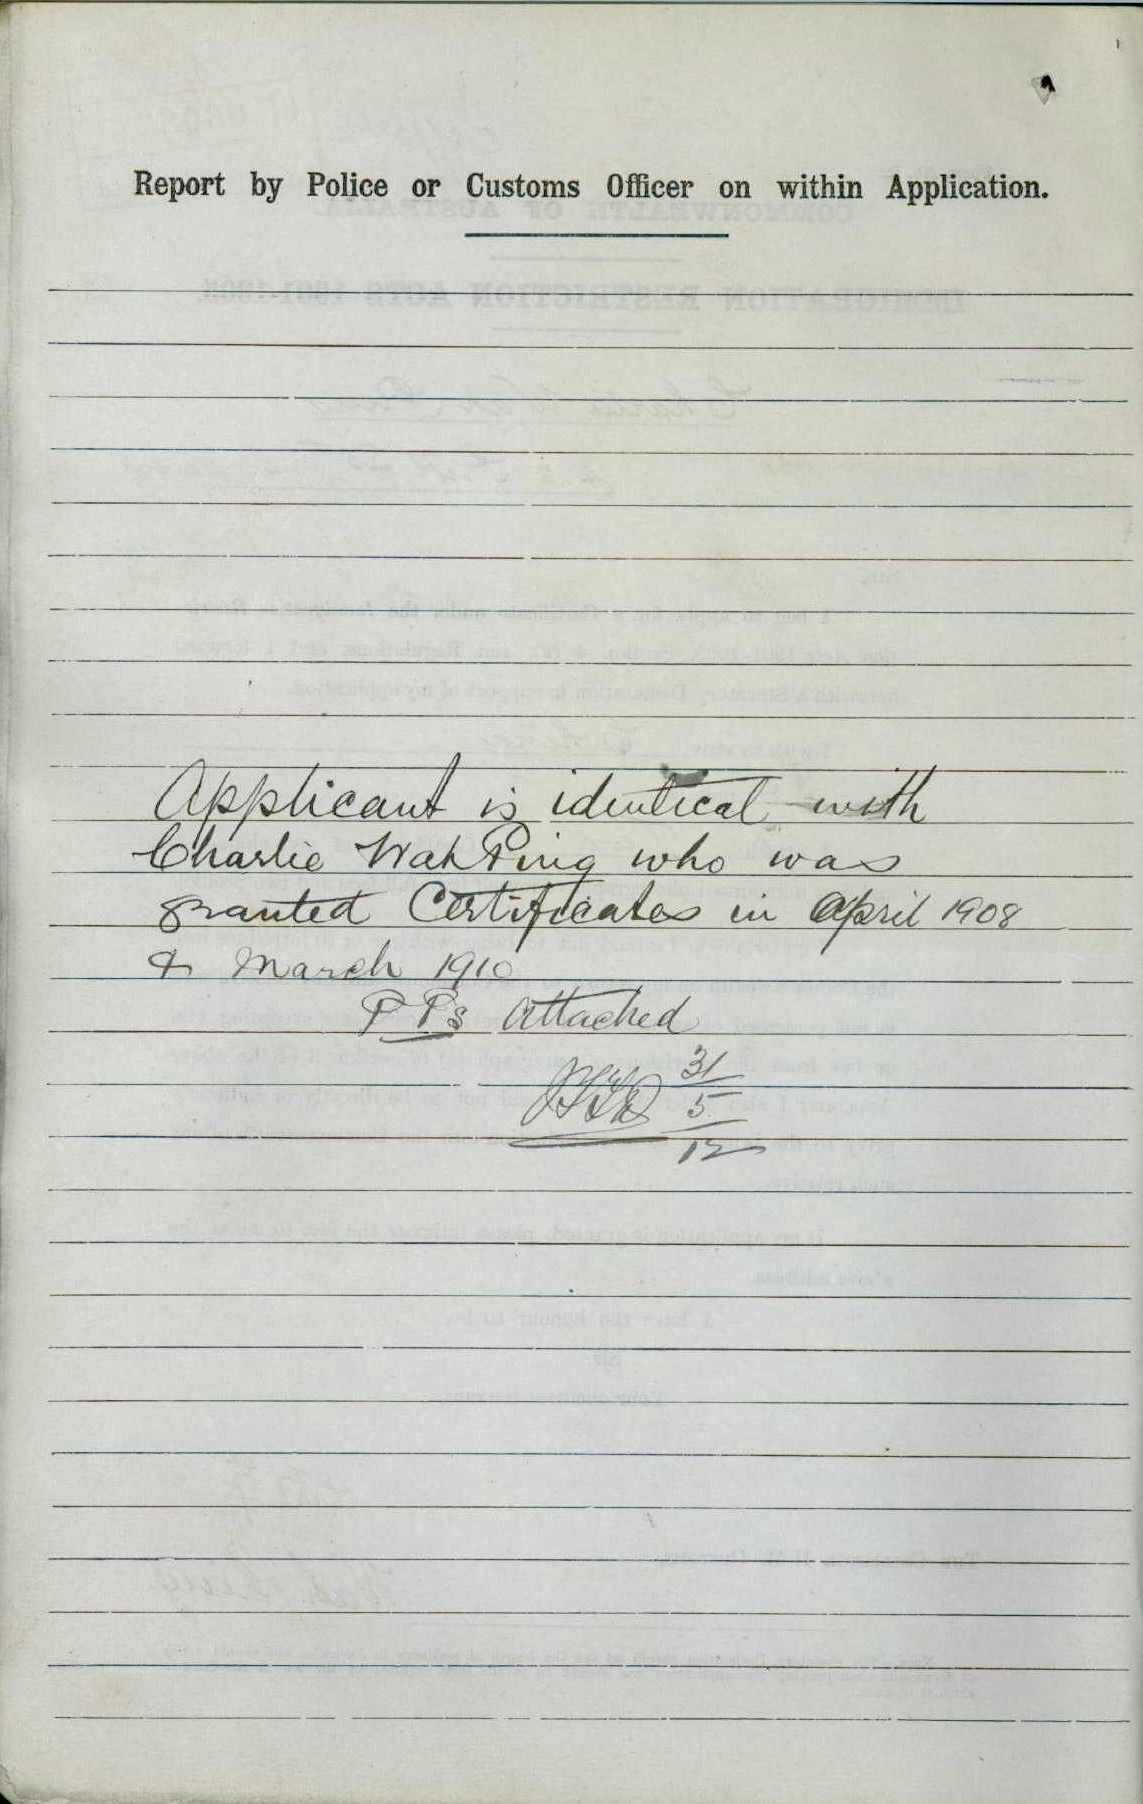 Report by Police or Customs Officer on within Application.
Applicant is identical with
Charlie Wah Ping who was
granted Certificates in April 1908
& March 1910
PPs attached
31
5
12